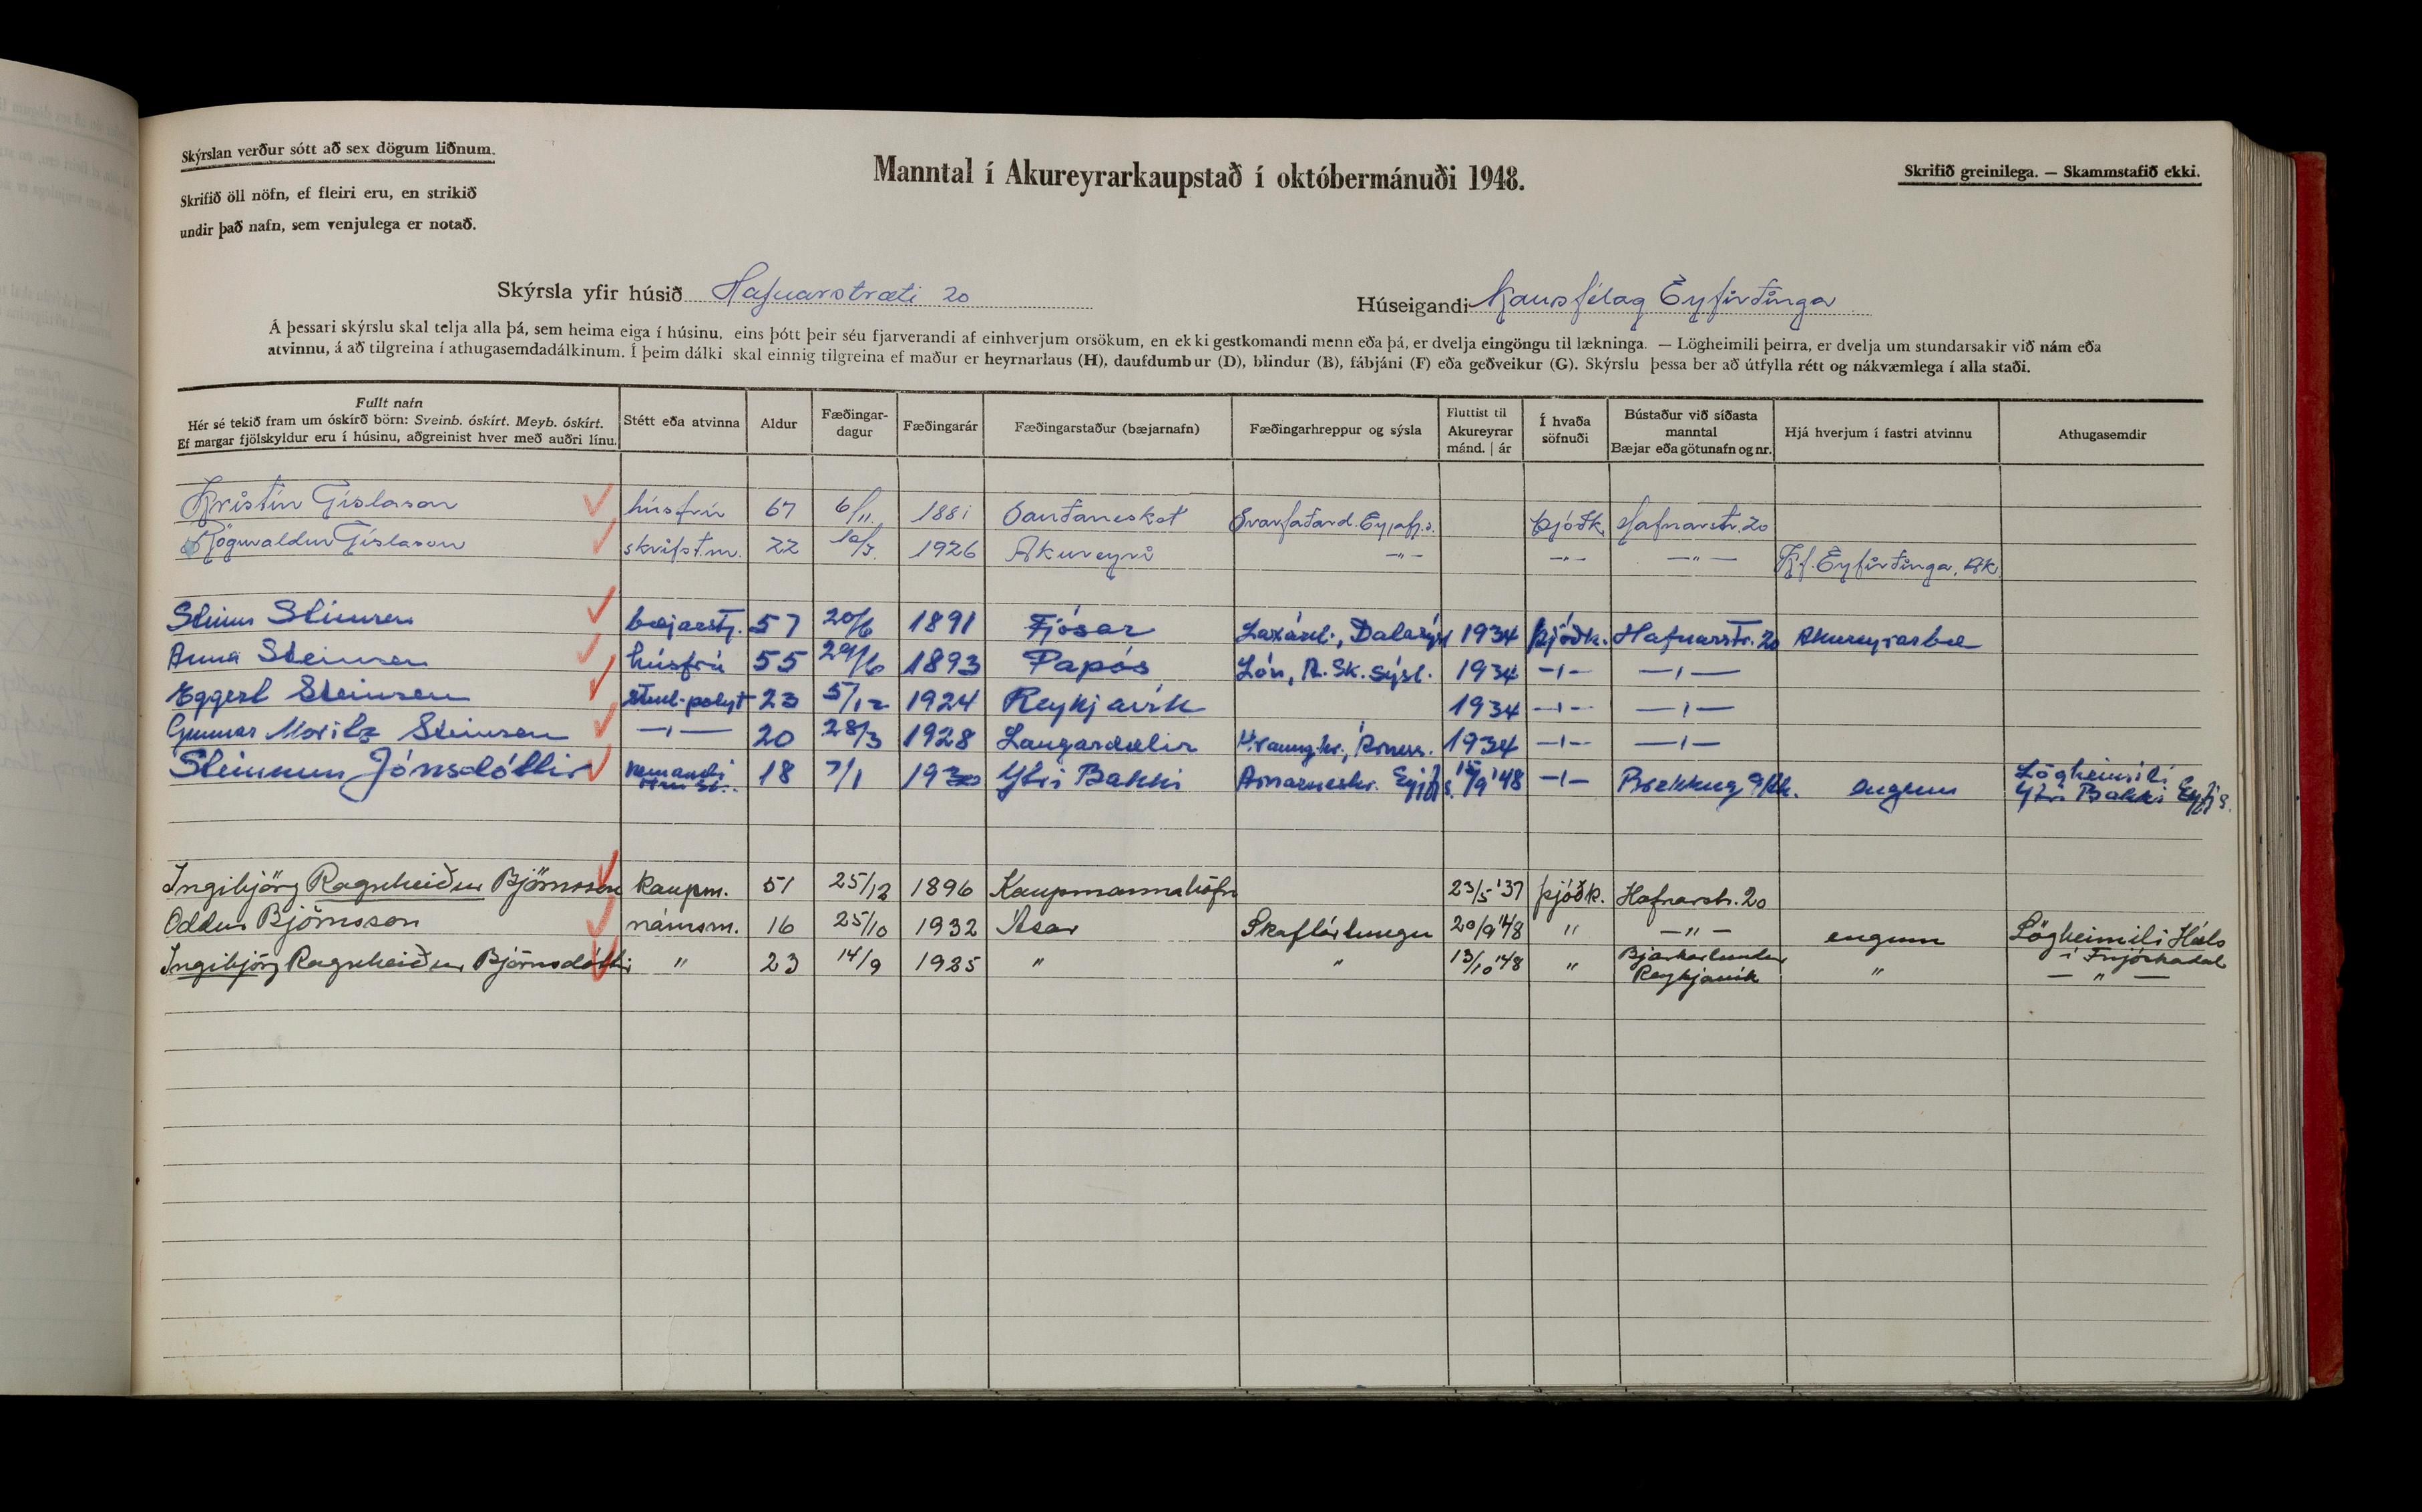 Skýrslan verður sótt að sex dögum liðnum.
Skrifið öll nöfn, ef fleiri eru, en strikið
undir það nafn, sem venjulega er notað.
Manntal í Akureyrarkaupstað í októbermánuði 1948.
Skrifið greinilega. — Skammstafið ekki.
Skýrsla yfir húsið Hafnarstræti 20
Húseigandi Kaupfélag Eyfirðinga
Á þessari skýrslu skal telja alla þá, sem heima eiga í húsinu, eins þótt þeir séu fjarverandi af einhverjum orsökum, en ekki gestkomandi menn eða þá, er dvelja eingöngu til lækninga. — Lögheimili þeirra, er dvelja um stundarsakir við nám eða
atvinnu, á að tilgreina í athugasemdadálkinum. Í þeim dálki skal einnig tilgreina ef maður er heyrnarlaus (H), daufdumbur (D), blindur (B), fábjáni (F) eða geðveikur (G). Skýrslu þessa ber að útfylla rétt og nákvæmlega í alla staði.
Fullt nafn
Hér sé tekið fram um óskírð börn: Sveinb. óskírt. Meyb. óskírt.
Ef margar fjölskyldur eru í húsinu, aðgreinist hver með auðri línu.
Stétt eða atvinna
Aldur
Fæðingar-
dagur
Fæðingarár
Fæðingarstaður (bæjarnafn)
Fæðingarhreppur og sýsla
Fluttist til
Akureyrar
mánd. | ár
Í hvaða
söfnuði
Bústaður við síðasta
manntal
Bæjar eða götunafn og nr.
Hjá hverjum í fastri atvinnu
Athugasemdir
Kristín Gíslason húsfrú 67 6/11 1881 Svarfaðard. Eyjafj.s. Þjóðk. Hafnarstr. 20
Rögnvaldur Gíslason skrifst.m. 22 1926 Akureyri —"— —"— —"— Kf. Eyfirðinga, Ak.
Steinn Steinsen bæjarstj. 57 20/6 1891 Fjósar Laxárd., Dalasýsl 1934 Þjóðk. Hafnarstr. 20 Akureyrarbæ
Anna Steinsen húsfrú 55 1893 Papós Lón, A. Sk. sýsl. 1934 —ı— —ı—
Eggert Steinsen stud. polyt 23 5/12 1924 Reykjavík 1934 —ı— —ı—
Gunnar Moritz Steinsen —ı— 20 28/3 1928 Laugardælir Hraung.hr., Árness. 1934 —ı— —ı—
Steinunn Jónsdóttir nemandi 18 7/1 1930 Ytri Bakki Arnarneshr. Eyjfs. 15/9 '48 —ı— Brekkug 9 Ak. engum Lögheimili
Ytri Bakki Eyjfs.
Ingibjörg Ragnheiður Björnsson kaupm. 51 25/12 1896 Kaupmannahöfn 23/5 '37 þjóðk. Hafnarstr. 20
Oddur Björnsson námsm. 16 25/10 1932 Ásar Skaftártungu 20/9 '48 " —"— engum Lögheimili Háls
í Fnjóskadal
Ingibjörg Ragnheiður Björnsdóttir " 23 14/9 1925 " " 13/10 '48 " Bjarkarlundur
Reykjavík " —"—